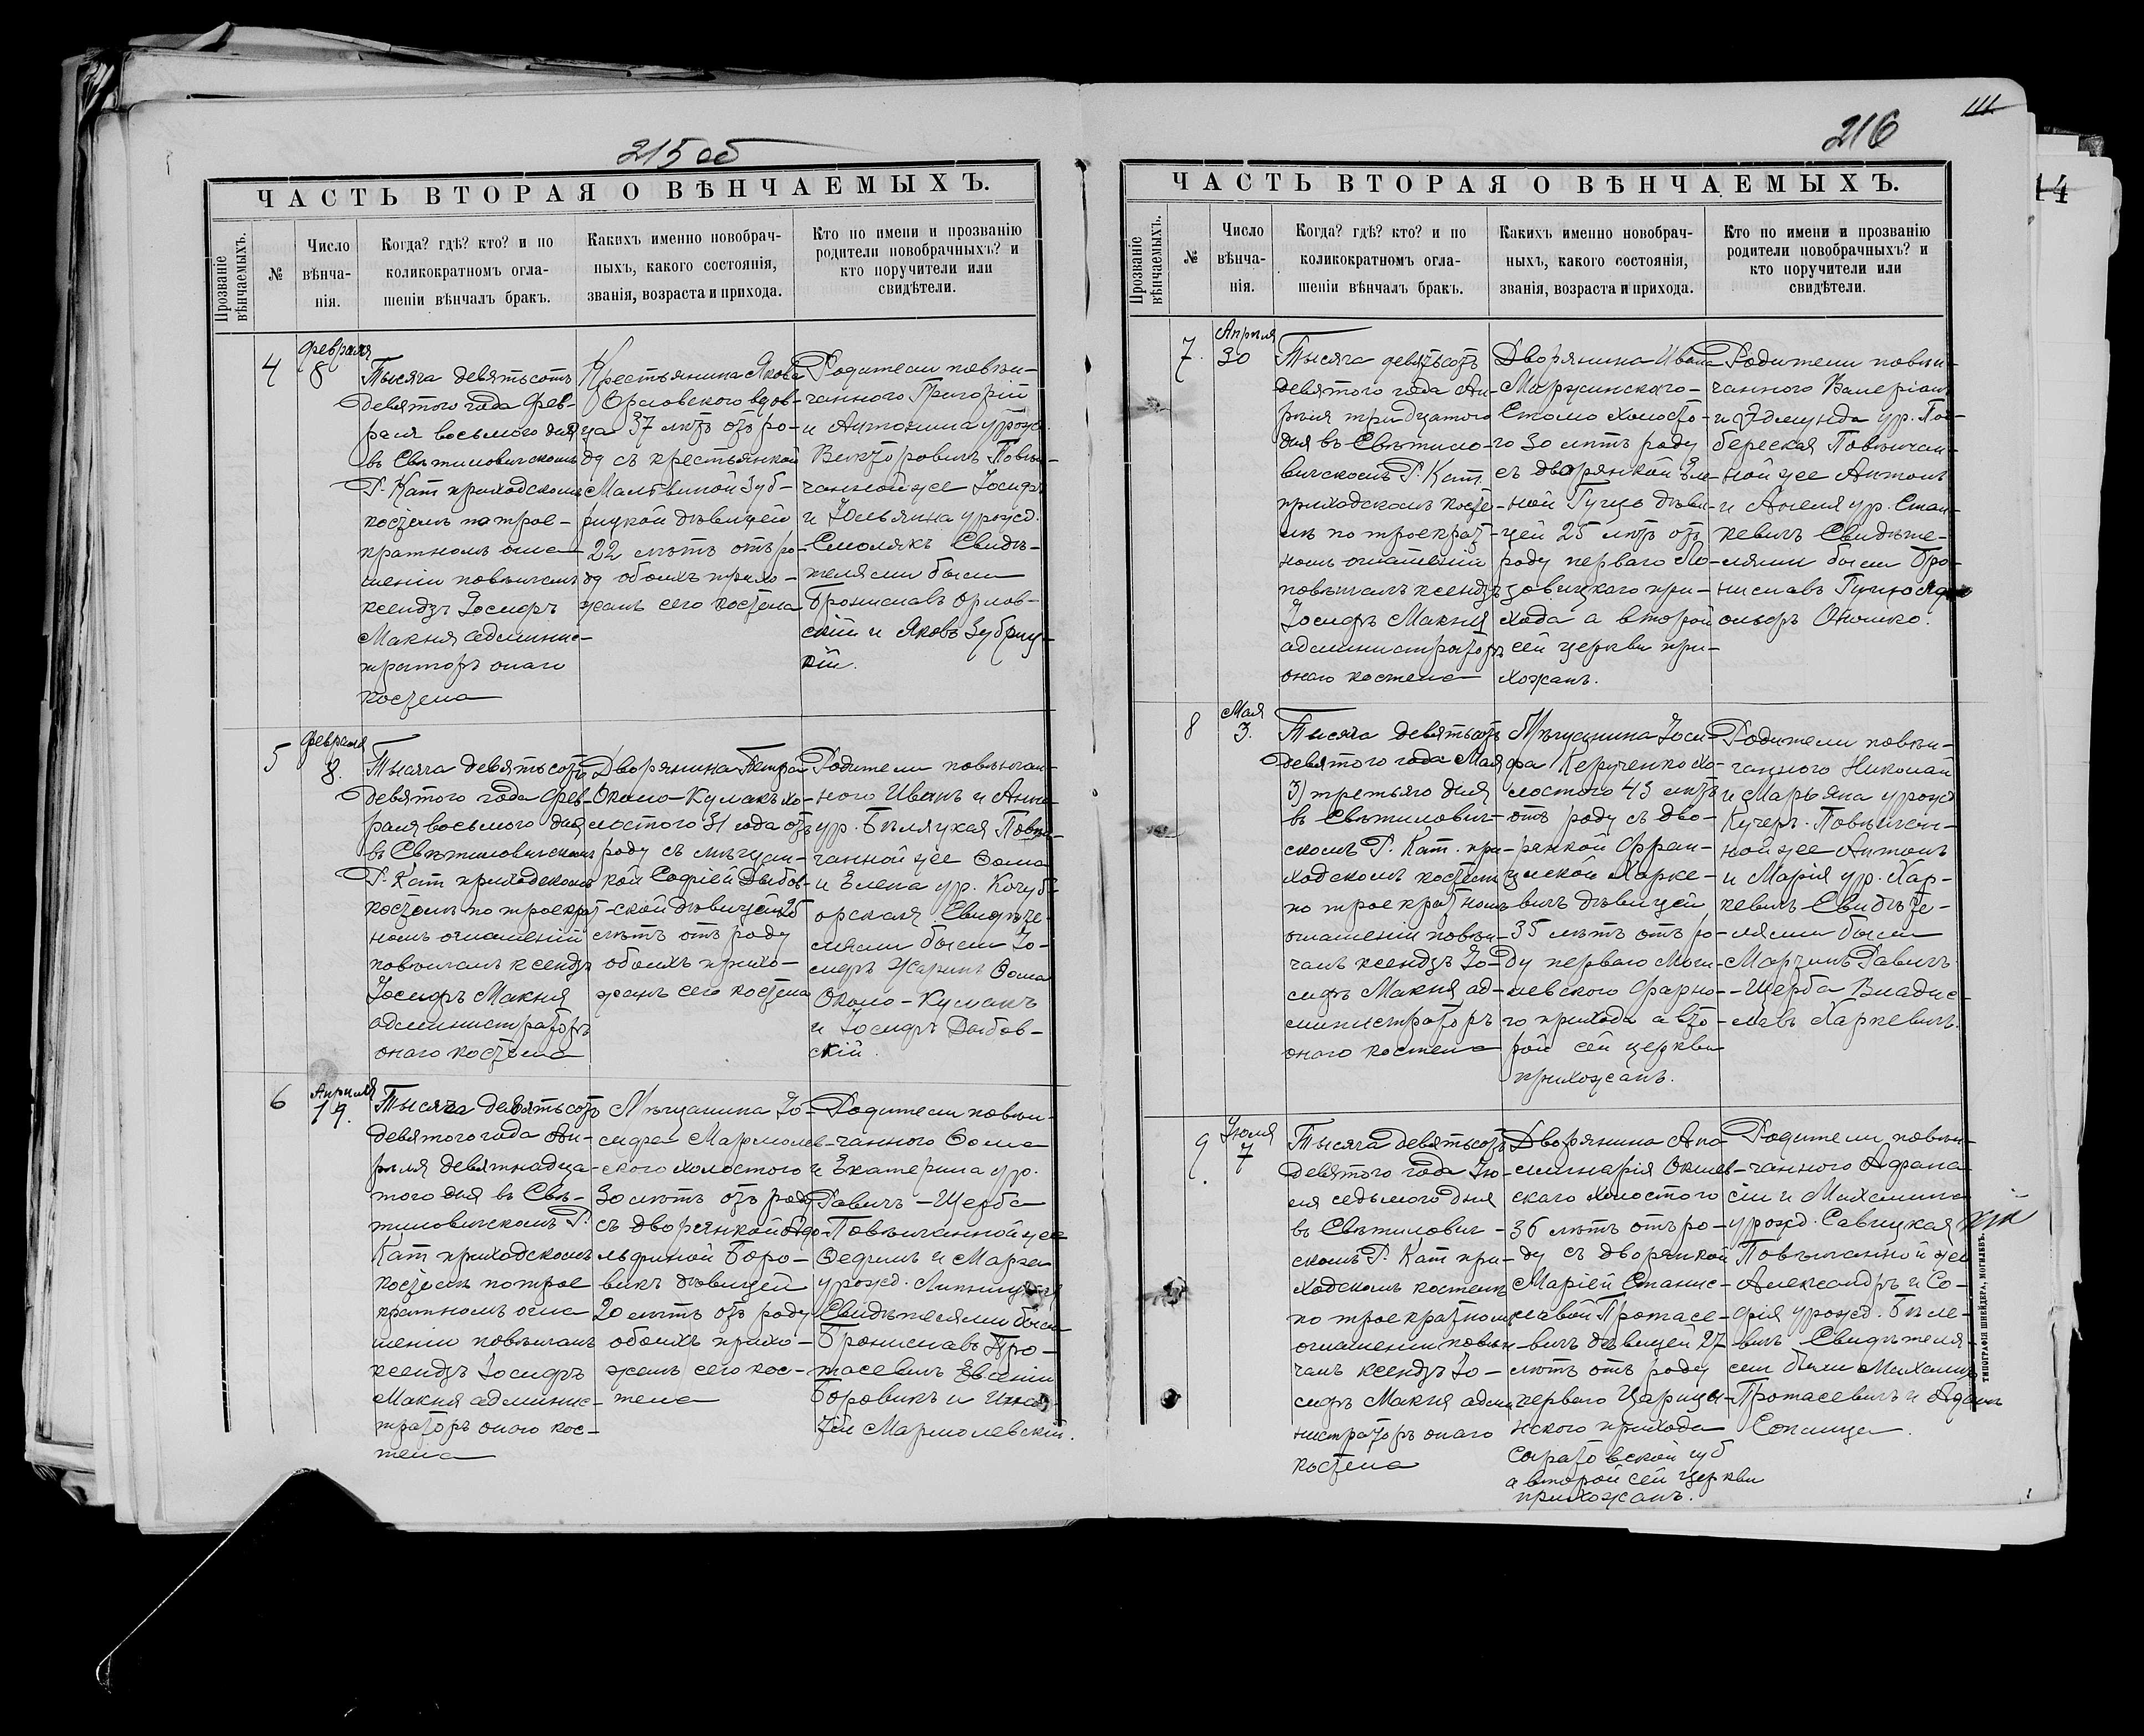 215 об
ЧАСТЬ ВТОРАЯ О ВѢНЧАЕМЫХЪ.
Прозваніе вѣнчаемыхъ.
№
Число
вѣнча-
нія.
Когда? гдѣ? кто? и по
коликократномъ огла-
шеніи вѣнчалъ бракъ.
Какихъ именно новобрач-
ныхъ, какого состоянія,
званія, возраста и прихода.
Кто по имени и прозванію
родители новобрачныхъ? и
кто поручители или
свидѣтели.
4
Февраля
8
Тысяча девятьсотъ
девятого года Фев-
раля восьмого дня
въ Свѣтиловичскомъ
Р. Кат приходскомъ
костелѣ по трое-
кратномъ огла-
шеніи повѣнчалъ
ксендзъ Іосифъ
Макня админис-
траторъ онаго
костела
Крестьянина Якова
Орловского вдов-
ца 37 лѣтъ отъ ро-
ду съ крестьянкой
Мальвиной Зуб-
рицкой дѣвицей
22 лѣтъ отъ ро-
ду обоихъ прихо-
жанъ сего костела
Родители повѣн-
чанного Григорій
и Антонина урожд.
Викторовичъ Повѣн-
чанной же Іосифъ
и Юльянна урожд.
Смолякъ Свидѣ-
телями были
Брониславъ Орлов-
скій и Яковъ Зубриц-
кій.
5
Февраля
8.
Тысяча девятьсотъ
девятого года Фев-
раля восьмого дня
въ Свѣтиловичскомъ
Р. Кат приходскомъ
костелѣ по троекрат-
номъ оглашеніи
повѣнчалъ ксендзъ
Іосифъ Макня
администраторъ
онаго костела
Дворянина Петра
Около-Кулакъ хо-
лостого 31 года отъ
роду съ мѣщан-
кой Софіей Дыбов-
ской дѣвицей 25
лѣтъ отъ роду
обоихъ прихо-
жанъ сего костела
Родители повѣнчан-
ного Иванъ и Анна
ур. Бѣляцкая Повѣн-
чанной же Ѳома
и Елена ур.
Свидѣте-
лями были Іо-
сифъ Ѳома
Около-Кулакъ
и Іосифъ Дыбов-
скій.
6
Апрѣля
19.
Тысяча девятьсотъ
девятого года Ап-
рѣля девятнадца-
того дня въ Свѣ-
тиловичскомъ Р.
Кат приходскомъ
костелѣ по трое
кратномъ огла
шеніи повѣнчалъ
ксендзъ Іосифъ
Макня админис-
траторъ онаго кос-
тела
Мѣщанина Іо-
сифа Мармолев-
ского холостого
30 лѣтъ отъ роду
съ дворянкой Адо-
льфиной Боро-
викъ дѣвицей
20 лѣтъ отъ роду
обоихъ прихо-
жанъ сего кос-
тела
Родители повѣн-
чанного Ѳома
и Екатерина ур.
Равичъ-Щерба
Повѣнчанной же
и
урожд.
Свидѣтелями были
Брониславъ Про-
тасевичъ Евгеній
Боровикъ и Игна-
тій Мармолевскій.
216
ЧАСТЬ ВТОРАЯ О ВѢНЧАЕМЫХЪ.
Прозваніе вѣнчаемыхъ.
№
Число
вѣнча-
нія.
Когда? гдѣ? кто? и по
коликократномъ огла-
шеніи вѣнчалъ бракъ.
Какихъ именно новобрач-
ныхъ, какого состоянія,
званія, возраста и прихода.
Кто по имени и прозванію
родители новобрачныхъ? и
кто поручители или
свидѣтели.
7.
Апрѣля
30
Тысяча девятьсотъ
девятого года Ап-
рѣля тридцатого
дня въ Свѣтило-
вичскомъ Р. Кат.
приходскомъ косте-
лѣ по троекрат-
номъ оглашеніи
повѣнчалъ ксендзъ
Іосифъ Макня
администраторъ
онаго костела
Дворянина
холосто-
го 30 лѣтъ роду
съ дворянкой Еле-
ной дѣви-
цей 25 лѣтъ отъ
роду перваго
при-
хода а второй
сей церкви при-
хожанъ.
Родители повѣн-
чанного Валеріанъ
и ур.
Повѣнчан-
ной же Антонъ
и Анеля ур. Стан-
кевичъ Свидѣте-
лями были Бро-
ниславъ
8
Мая
3.
Тысяча девятьсотъ
девятого года Мая
3) третьяго дня
въ Свѣтилович-
скомъ Р. Кат. при-
ходскомъ костелѣ
по троекратномъ
оглашеніи повѣн-
чалъ ксендзъ Іо-
сифъ Макня ад-
министраторъ
онаго костела
Мѣщанина Іоси-
фа Керученко хо-
лостого 43 лѣтъ
отъ роду съ дво-
рянкой Фран-
циской Харке-
вичъ дѣвицей
35 лѣтъ отъ ро-
ду перваго Моги-
левского фарно-
го прихода а вто-
рой сей церкви
прихожанъ.
Родители повѣн-
чанного Николай
и Марьяна урожд
Кучеръ. Повѣнчан-
ной же Антонъ
и Марія ур. Хар-
кевичъ Свидѣте-
лями были
Равичъ
-Щерба Владис-
лавъ Харкевичъ.
9.
Іюля
7
Тысяча девятьсотъ
девятого года Ію-
ля седьмого дня
въ Свѣтилович-
скомъ Р. Кат при-
ходскомъ костелѣ
по троекратномъ
оглашеніи повѣн-
чалъ ксендзъ Іо-
сифъ Макня адми
нистраторъ онаго
костела
Дворянина Апо
линарія
скаго холостого
36 лѣтъ отъ ро-
ду съ дворянкой
Маріей Станис-
лавой Протасе-
вичъ дѣвицей 27
лѣтъ отъ роду
перваго Царицы-
нского прихода
Саратовской губ
а второй сей церкви
прихожанъ.
Родители повѣн-
чанного Афана-
сій и Михалина
урожд. Савицкая
Повѣнчанной же
Александръ и Со-
фія урожд. Бѣле-
вичъ Свидѣтеля-
ми были Михаилъ
Протасевичъ и Адамъ
ТИПОГРАФІЯ ШНЕЙДЕРА, МОГИЛЕВЪ.
14